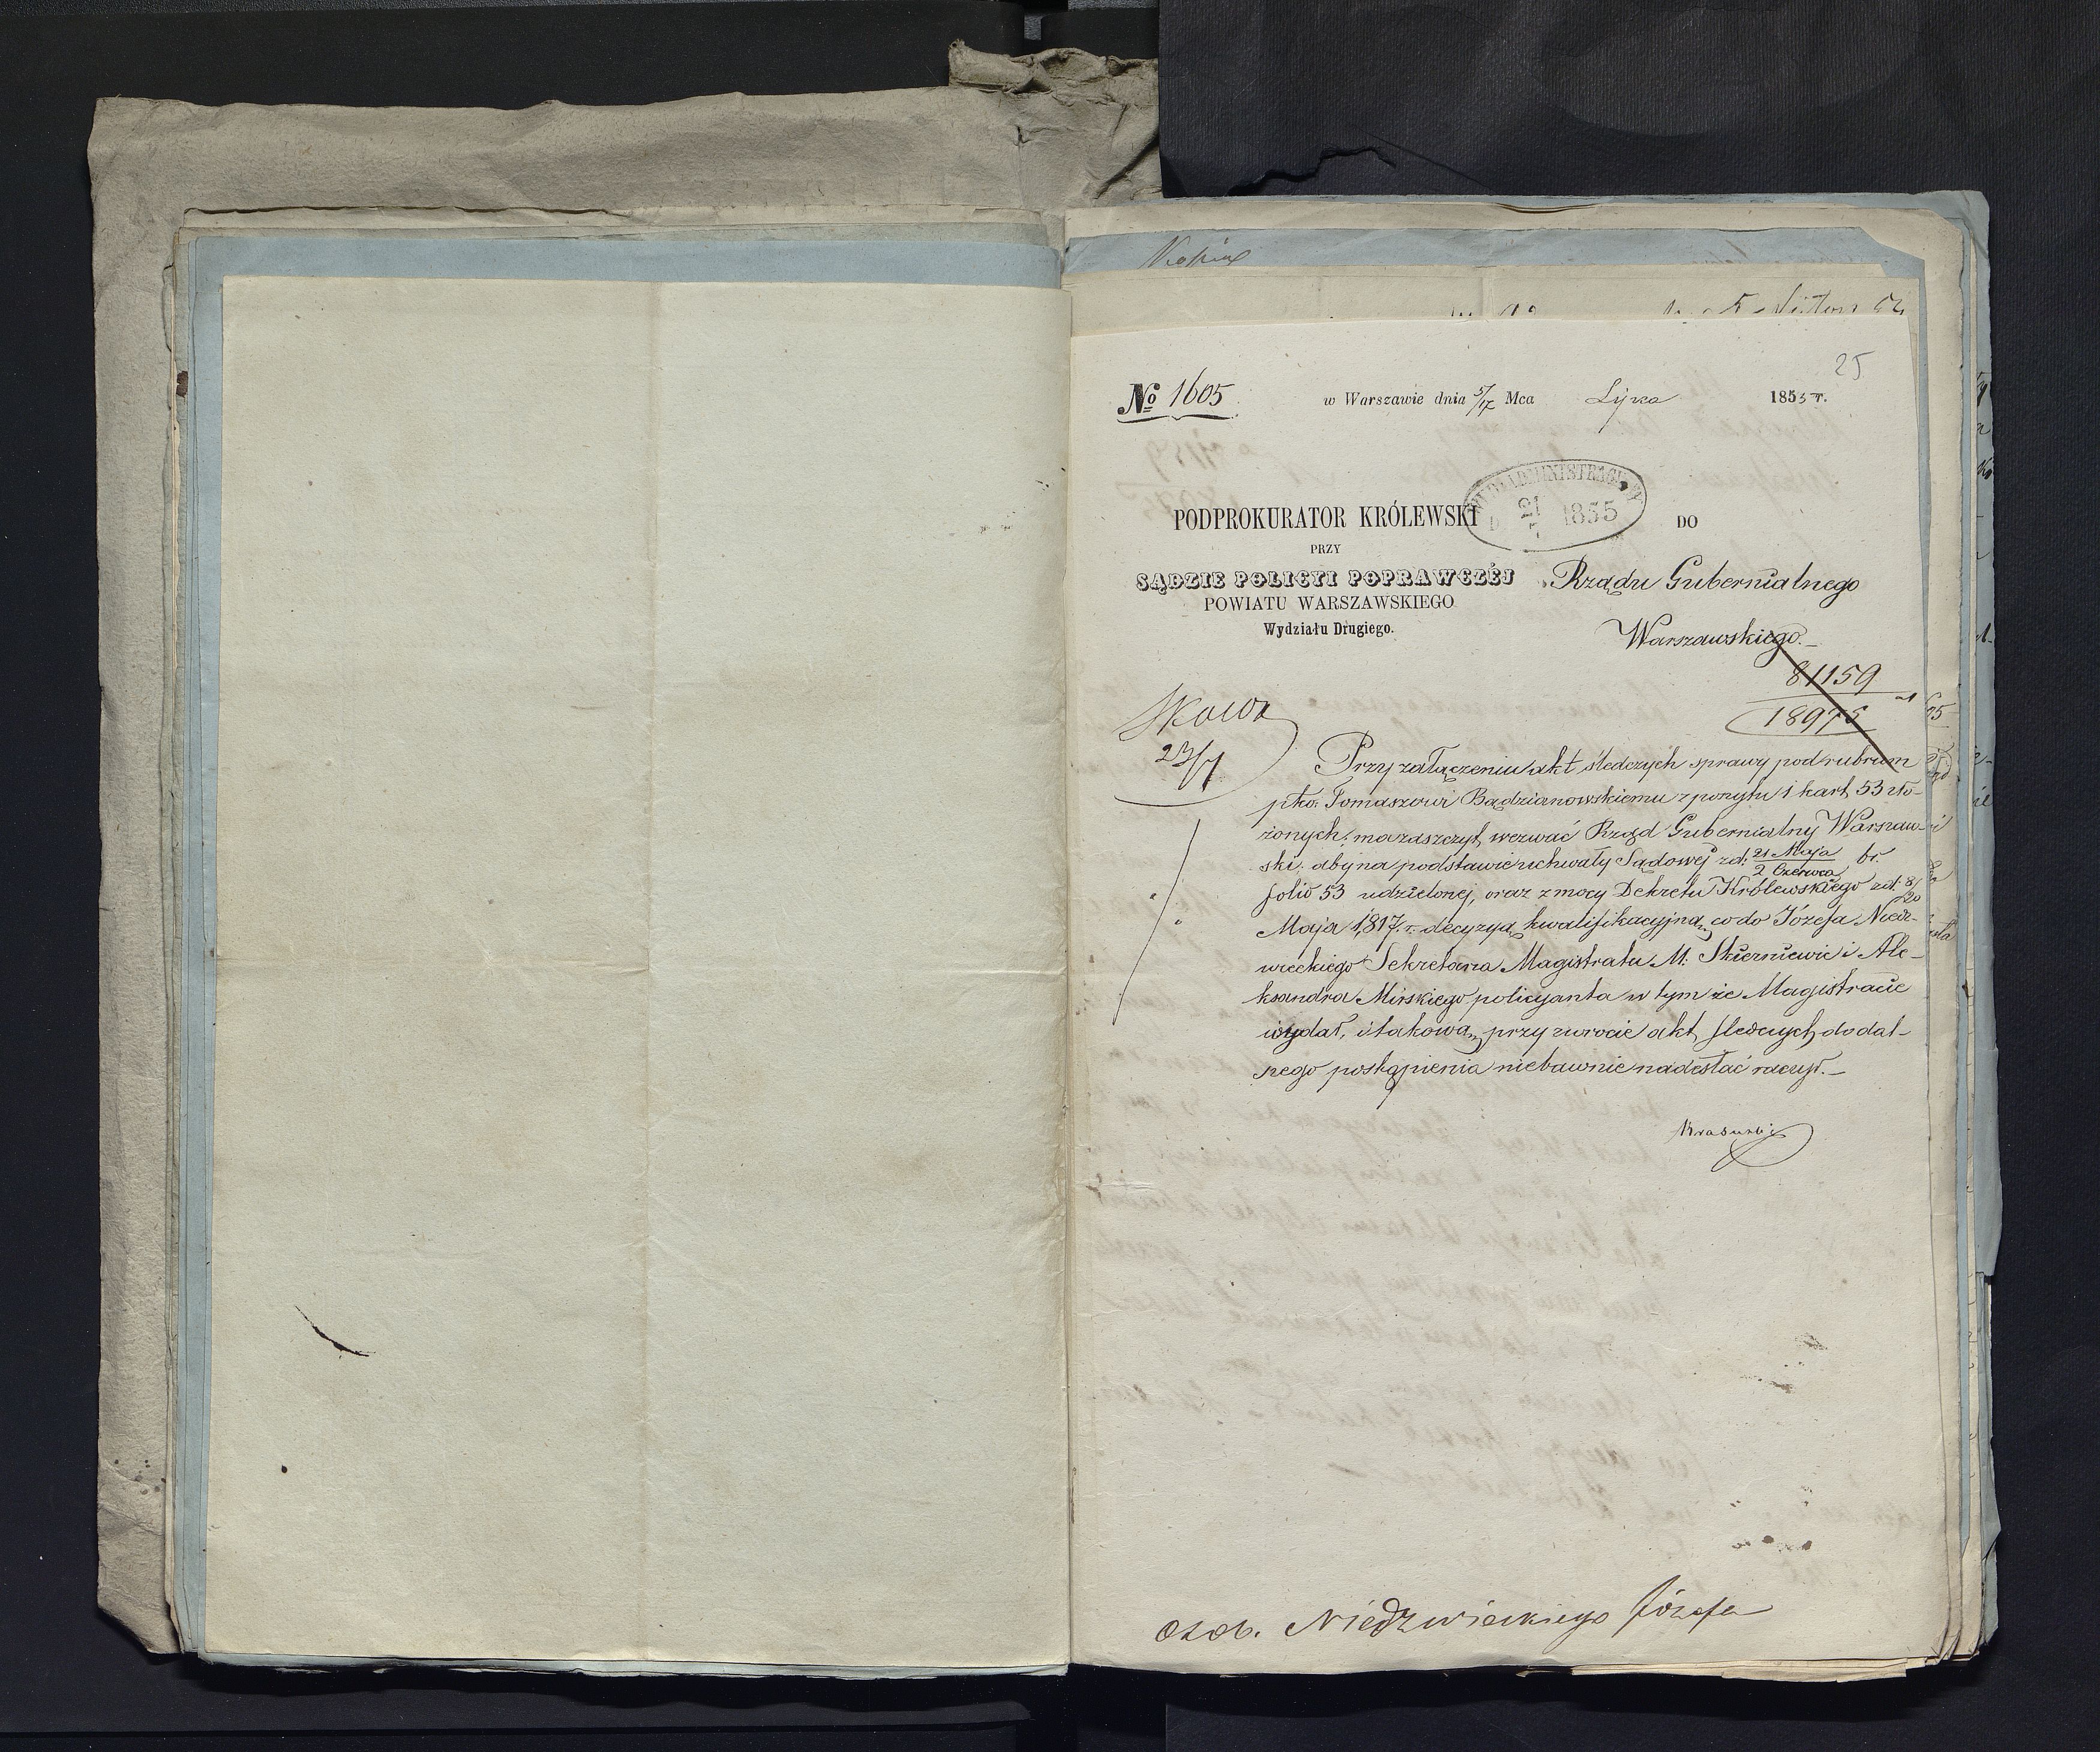 25
No 1605 w Warszawie dnia 5/17 Mca Lipca 1855 r.
WYDZ ADMINISTRACYJNY
21/7 1855
PODPROKURATOR KRÓLEWSKI DO
PRZY
SĄDZIE POLICYI POPRAWCZÉJ Rządu Gubernialnego
POWIATU WARSZAWSKIEGO
Warszawskiego.
Wydziału Drugiego.
81159
18975
23/7
Przy załączeniu akt śledczych sprawy pod rubrum
pko. Tomaszowi Bądzianowskiemu z poszytu 1 kart 53 zło-
żonych, mam zaszczyt wezwać Rząd Gubernialny Warszaw-
ski, aby na podstawie uchwały Sądowej z d: 21 Maja / 2 Czerwca br.
folio 53 udzielonej, oraz z mocy Dekretu Królewskiego z d: 8/20
Maja 1817 r. decyzyą kwalifikacyjną co do Józefa Niedz-
wieckiego Sekretarza Magistratu M: Skierniewic i Ale-
ksandra Mirskiego policyanta w tym że Magistracie
wydał, i takową przy zwrocie akt śledczych do dal-
szego postąpienia niebawnie nadesłać raczył.
Krasuski
Osob. Niedzwieckiego Józefa